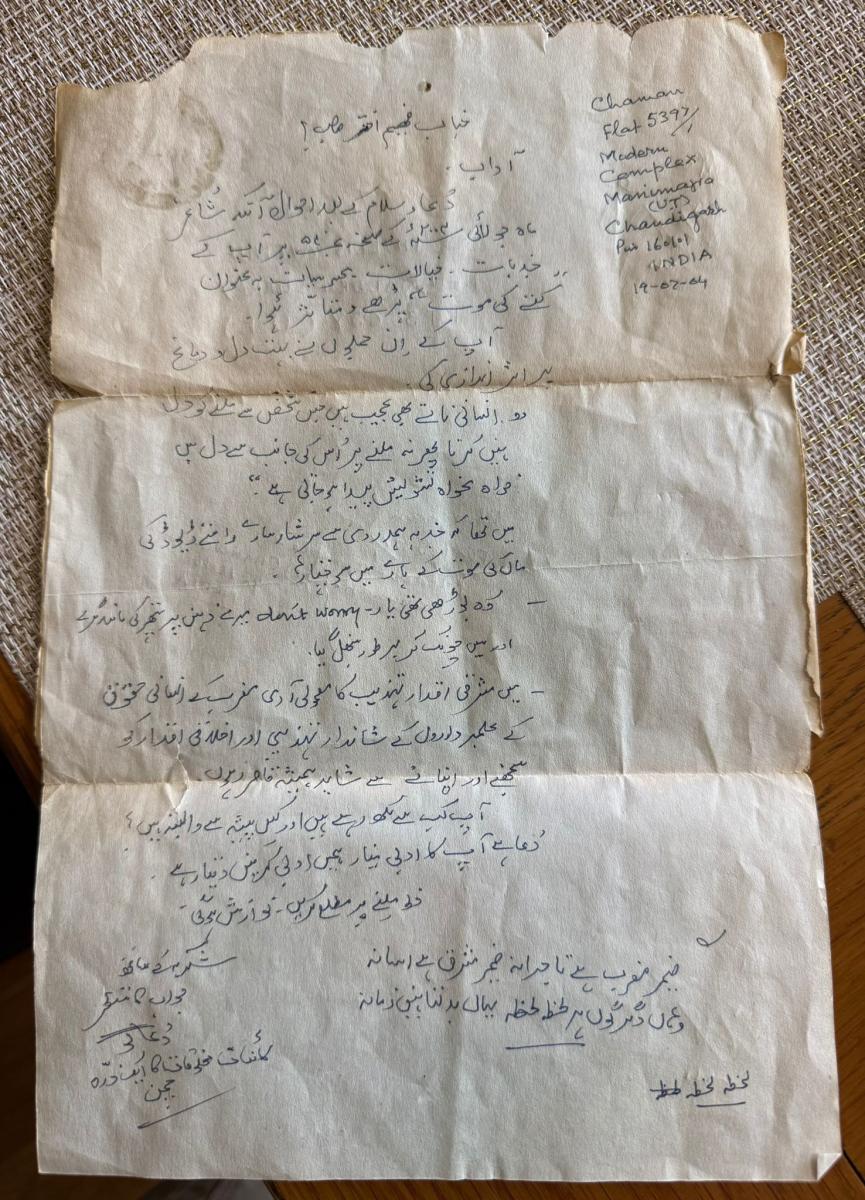 Chaman
Flat 5397/
Modern
Complex
Manimajra
(UT)
Chandigarh
Pin 160101
INDIA
19-07-04
جناب فہیم اختر صاحب!
آداب۔
دُعا و سلام کے بعد احوال آنکہ شاعر
ماہ جولائی کے صفحہ نمبر پر آپ کے
جذبات۔ خیالات۔ تجربات بہ عنوان
"کتے کی موت" پڑھے و متاثر ہُوا۔
آپ کے اِن جملوں نے بہت دل و دماغ
پر اثر اندازی کی۔
انسانی ناتے بھی عجیب ہیں جس شخص سے ملنے کو دل
نہیں کرتا پھر نہ ملنے پر اُس کی جانب سے دل میں
خواہ مخواہ تشویش پیدا ہو جاتی ہے"
میں تھا کہ جذبہ ہمدردی سے سرشار مارے واسنے ڈیوڈ کی
ماں کی موت کے بارے میں سوچتا رہا۔
— وہ بوڑھی تھی یار۔ don't worry میرے ذہن پر پتھر کی مانند گرے
اور میں چونک کر بہر طور سنبھل گیا۔
— میں مشرقی اقدار تہذیب کا معمولی آدمی مغرب کے انسانی حقوق
کے علمبرداروں کے شاندار تہذیبی اور اخلاقی اقدار کو
سمجھنے اور اپنانے سے شاید ہمیشہ قاصر رہوں
آپ کب سے لکھ رہے ہیں اور کس پیشہ سے وابستہ ہیں؟
دُعا ہے آپ کا ادبی ہمیں ادبی دیتا رہے۔
خط ملنے پر مطلع کریں۔ نوازش ہوگی۔
ضمیر مغرب ہے تاجرانہ ضمیر مشرق ہے راہبانہ
وہاں دگرگوں ہے لحظہ لحظہ یہاں بدلتا نہیں زمانہ
لحظہ لحظہ
شکریہ کے ساتھ
جواب کا منتظر
دُعا گو
کائنات مخلوقات کا ایک ذرہ
چمن